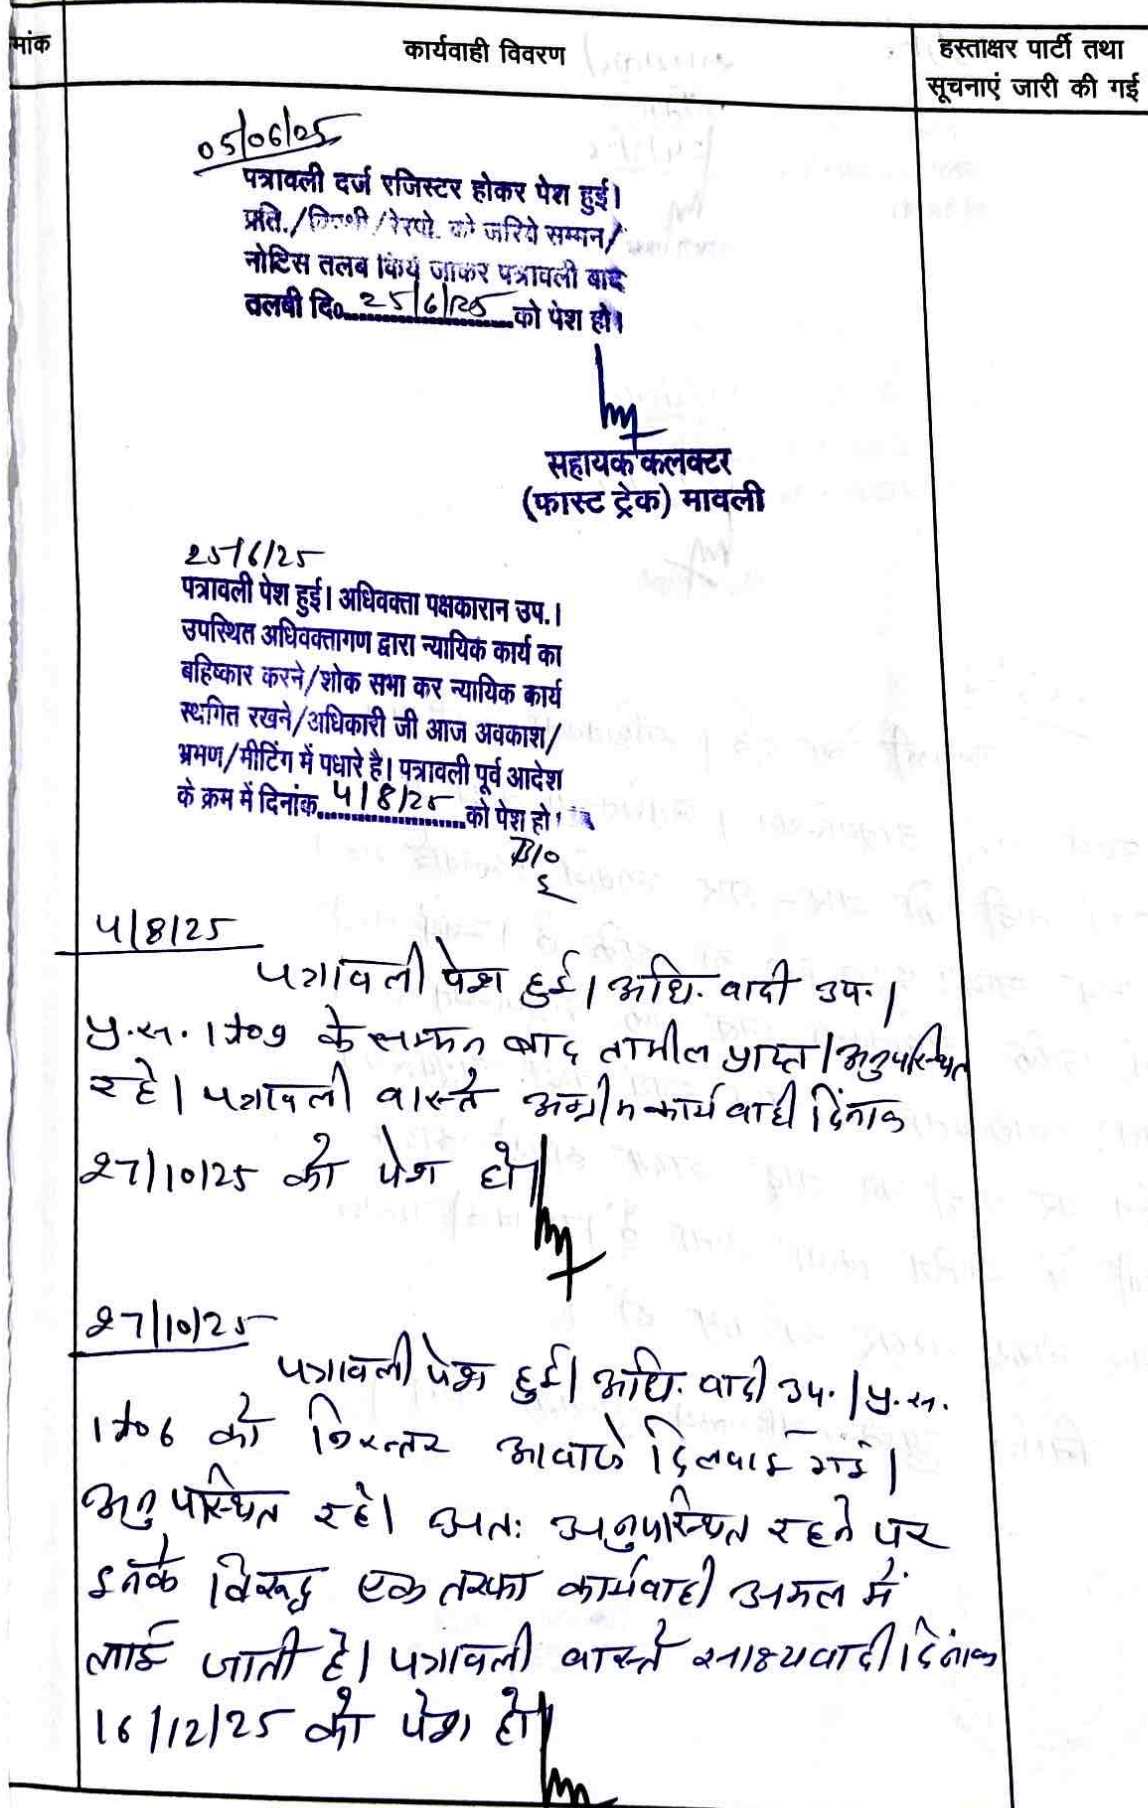 मांक
कार्यवाही विवरण
हस्ताक्षर पार्टी तथा
सूचनाएं जारी की गई
05/06/25
पत्रावली दर्ज रजिस्टर होकर पेश हुई।
प्रति./विपक्षी/रेस्पो. को जरिये सम्मन/
नोटिस तलब किये जाकर पत्रावली बाद
तलबी दि० 25/6/25 को पेश हो।
सहायक कलक्टर
(फास्ट ट्रेक) मावली
25/6/25
पत्रावली पेश हुई। अधिवक्ता पक्षकारान उप.।
उपस्थित अधिवक्तागण द्वारा न्यायिक कार्य का
बहिष्कार करने/शोक सभा कर न्यायिक कार्य
स्थगित रखने/अधिकारी जी आज अवकाश/
भ्रमण/मीटिंग में पधारे है। पत्रावली पूर्व आदेश
के क्रम में दिनांक 4/8/25 को पेश हो।
4/8/25
पत्रावली पेश हुई। अधि. वादी उप.।
प्र.स. के सम्मन बाद तामील प्राप्त। अनुपस्थित
रहे। पत्रावली वास्ते अग्रीम कार्यवाही दिंनाक
27/10/25 को पेश हो।
27/10/25
पत्रावली पेश हुई। अधि. वादी उप.। प्र.स.
1 को निरन्तर आवाजे दिलवाई गई।
अनुपस्थित रहे। अतः अनुपस्थित रहने पर
इनके विरूद्ध एक तरफा कार्यवाही अमल में
लाई जाती है। पत्रावली वास्ते साक्ष्यवादी दिंनाक
16/12/25 को पेश हो।